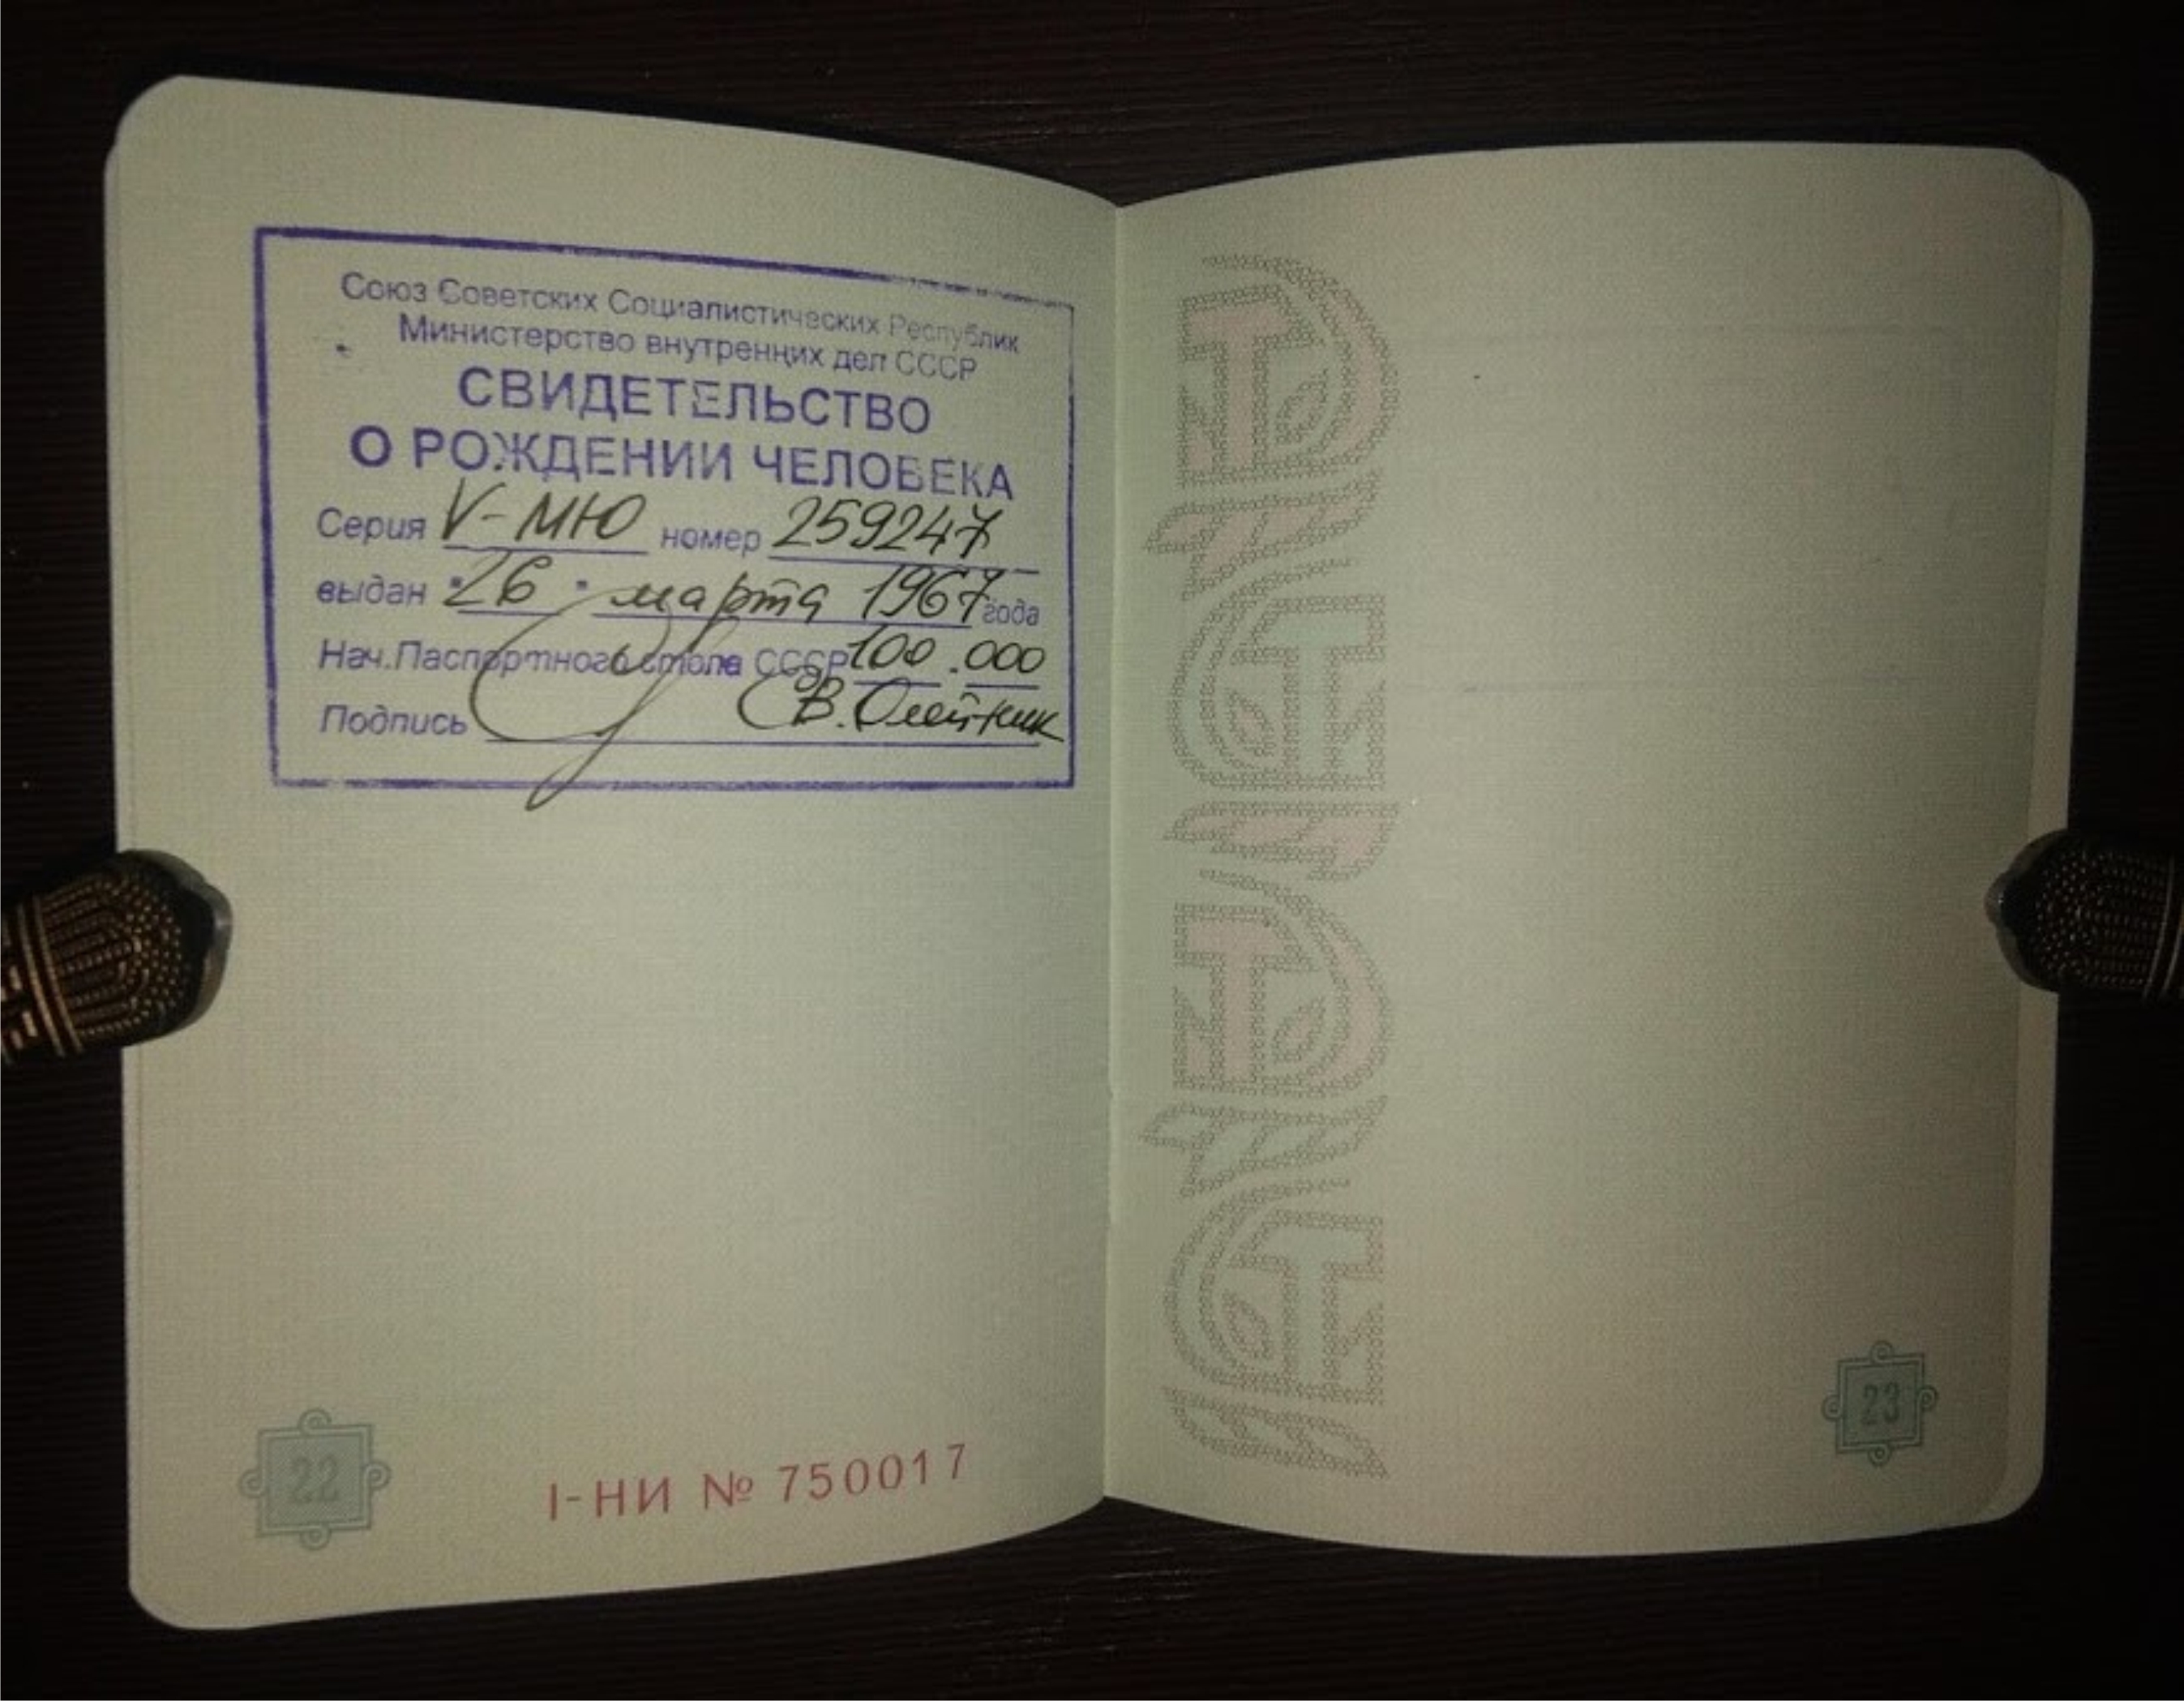 Союз Советских Социалистических Республик
Министерство внутренних дел СССР
СВИДЕТЕЛЬСТВО
О РОЖДЕНИИ ЧЕЛОВЕКА
Серия V-МЮ номер 259247
выдан "26" марта 1967 года
Нач.Паспортного стола СССР 100.000
Подпись В.Олейник
22
I-НИ № 750017
23